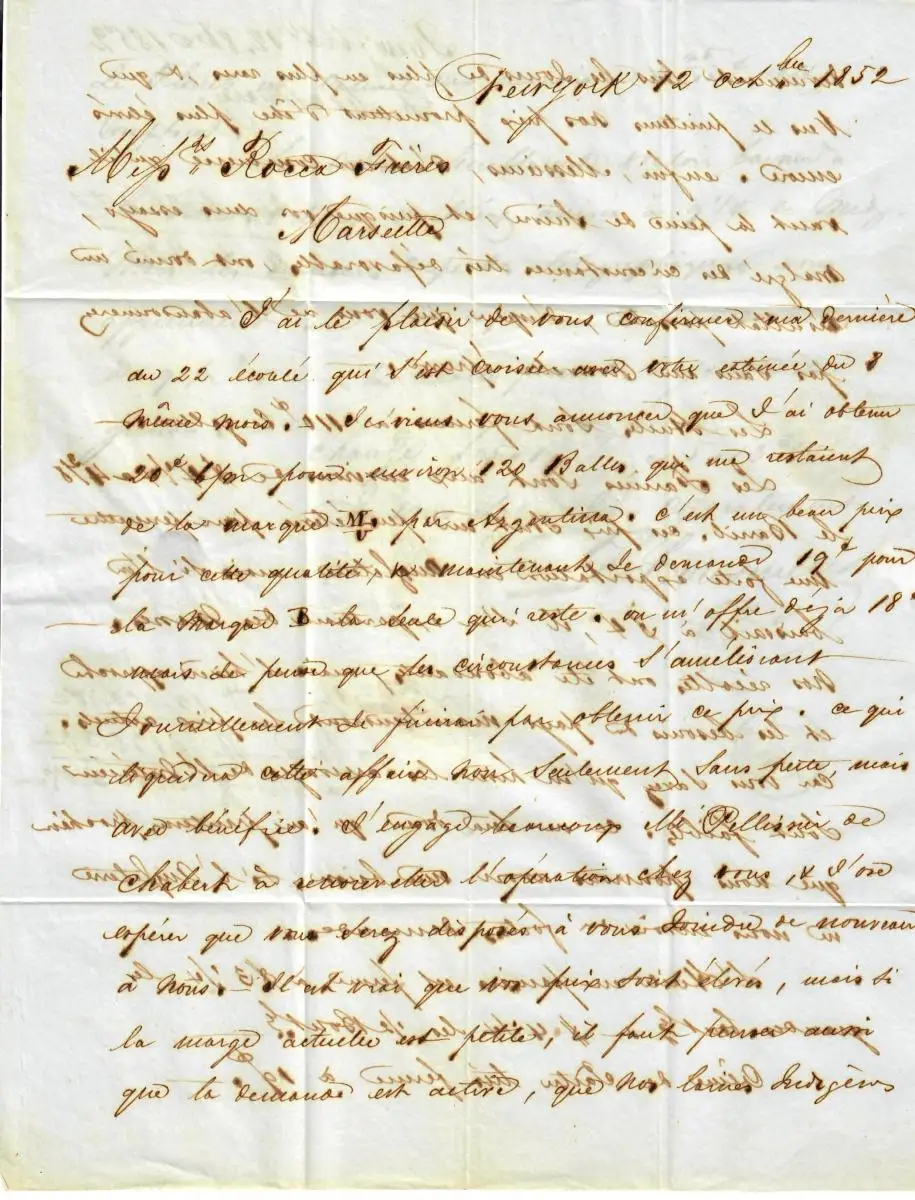 New York 12 Octbre 1852
Messrs Rocca Frères
Marseille
J'ai le plaisir de vous confirmer ma dernière
du 22 écoulé qui s'est croisée avec votre estimée du 8
même mois. Je viens vous annoncer que J'ai obtenu
20c 6/m pour environ 120 Balles qui me restaient
de la marque M par Argentina. c'est un beau prix
pour cette qualité & maintenant Je demande 19c pour
la Marque B la seule qui reste. on m'offre déjà 18c
mais Je pense que les circonstances s'améliorant
Journellement Je finirai par obtenir ce prix. ce qui
liquidera cette affaire non seulement sans perte, mais
avec bénéfice. J'engage beaucoup Mr Pellissier de
Chabert à renouveller l'opération chez vous, & J'ose
espérer que vous serez disposés à vous Joindre de nouveau
à nous. Il est vrai que vos prix sont élevés, mais si
la marge actuelle est petite, il faut penser aussi
que la demande est active, que nos laines Indigènes